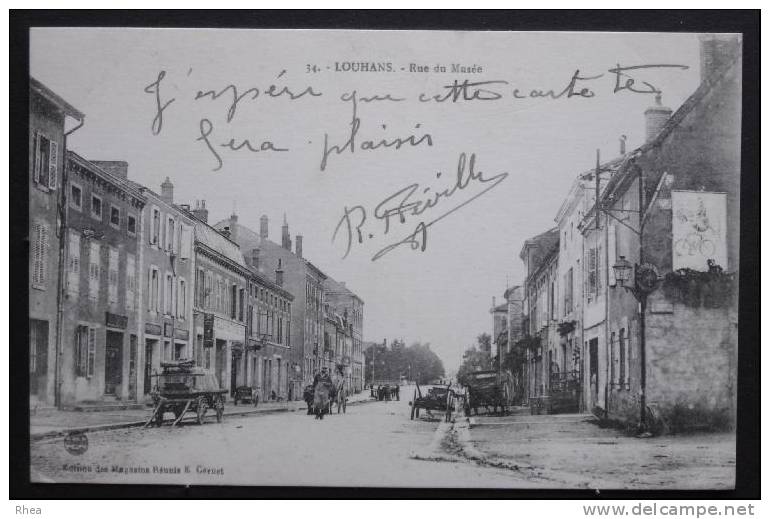 34. - LOUHANS. - Rue du Musée
J'espère que cette carte te
fera plaisir
R. Féville
Edition des Magasins Réunis E. Gervet
Rhea
www.delcampe.net